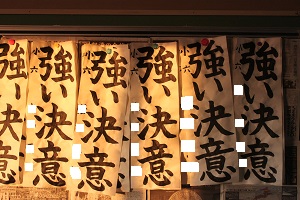 強い決意
小六
強い決意
小六
強い決意
小六
強い決意
小六
強い決意
小六
強い決意